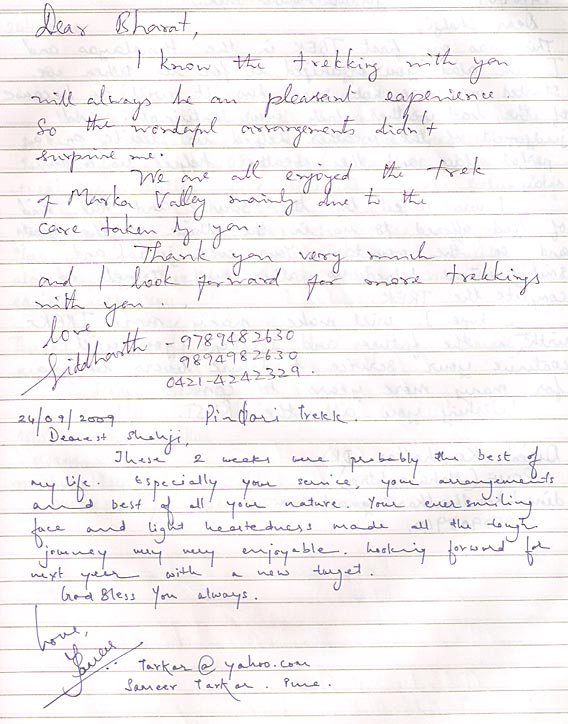 Dear Bharat,
I know the trekking with you
will always be an pleasant experience.
So the wonderful arrangements didn't
surprise me.
We are all enjoyed the trek
of Marka Valley mainly due to the
care taken by you.
Thank you very much
and I look forward for more trekkings
with you.
love
Siddharth - 9789482630
9894982630
0421-4242329.
24/09/2009 Pindari Trekk.
Dearest Shahji,
These 2 weeks were probably the best of
my life. Especially your service, your arrangements
and best of all your nature. Your ever smiling
face and light heartedness made all the tough
journey very very enjoyable. Looking forward for
next year with a new target.
God Bless You always.
Love,
Tarkar@yahoo.com
Sameer Tarkar. Pune.